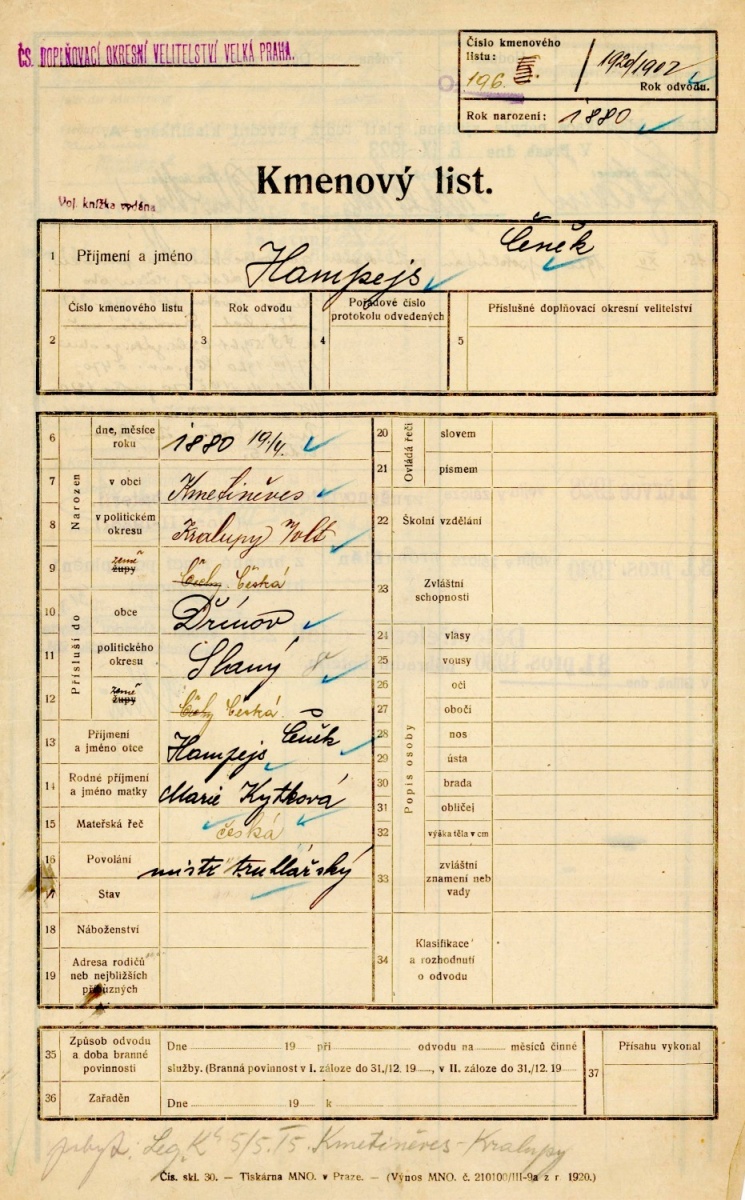 ČS. DOPLŇOVACÍ OKRESNÍ VELITELSTVÍ VELKÁ PRAHA.
Číslo kmenového
listu:
196.
1920/1902
Rok odvodu.
Rok narození: 1880
Kmenový list.
Voj. knížka vydána
1 Příjmení a jméno Hampejs Čeněk
2 Číslo kmenového listu
3 Rok odvodu
4 Pořadové číslo
protokolu odvedených
5 Příslušné doplňovací okresní velitelství
Narozen
6 dne, měsíce
roku 1880 19/4.
7 v obci Kmetiněves
8 v politickém
okresu Kralupy
9 země
župy Čechy Česká
Přísluší do
10 obce Dřínov
11 politického
okresu Slaný
12 země
župy Čechy Česká
13 Příjmení
a jméno otce Hampejs Čeněk
14 Rodné příjmení
a jméno matky Marie Kytková
15 Mateřská řeč česká
16 Povolání mistr truhlářský
17 Stav
18 Náboženství
19 Adresa rodičů
neb nejbližších
příbuzných
Ovládá řeči
20 slovem
21 písmem
22 Školní vzdělání
23 Zvláštní
schopnosti
Popis osoby
24 vlasy
25 vousy
26 oči
27 obočí
28 nos
29 ústa
30 brada
31 obličej
32 výška těla v cm
33 zvláštní
znamení neb
vady
34 Klasifikace
a rozhodnutí
o odvodu
35 Způsob odvodu
a doba branné
povinnosti
Dne 19 při odvodu na měsíců činné
služby. (Branná povinnost v I. záloze do 31./12. 19, v II. záloze do 31./12. 19
36 Zařaděn Dne 19 k
37 Přísahu vykonal
pobyt. Leg. 5/5. 15 Kmetiněves-Kralupy
Čís. skl. 30. — Tiskárna MNO. v Praze. — (Výnos MNO. č. 210100/III-9a z r 1920.)